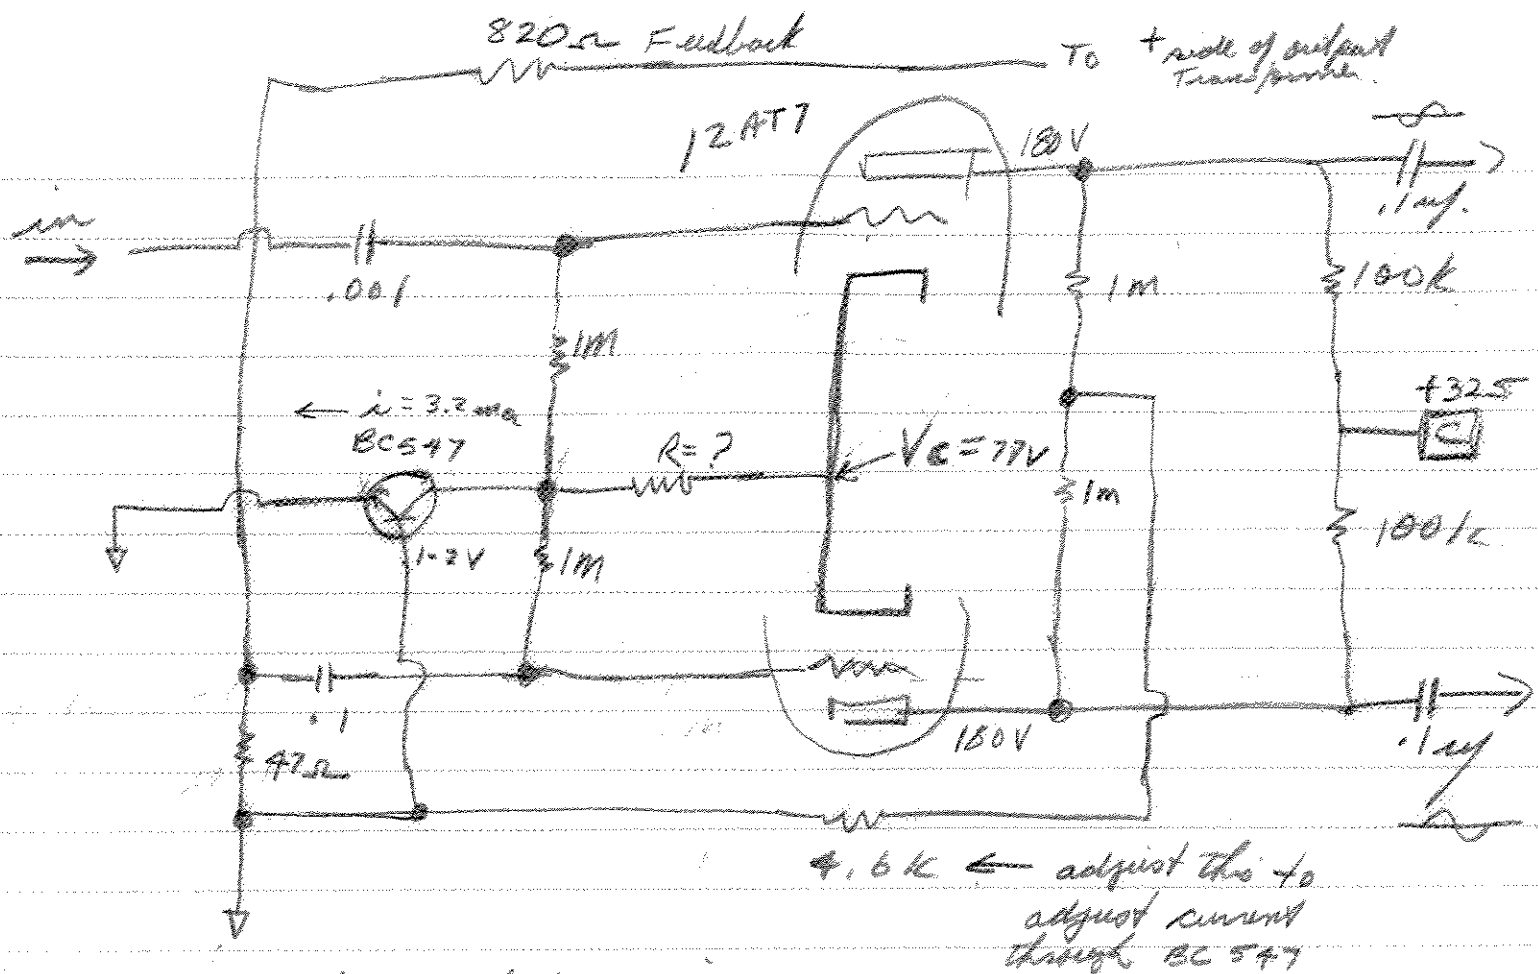 820Ω Feedback
To + side of output
Transformer.
12AT7
180V
in
.1uf.
.001
1m
100k
1M
+325
C
i = 3.2 ma
BC547
R=?
Vc = 77V
1m
100k
1.2V
1M
.1
180V
.1uf
47Ω
4.6k ← adjust this to
adjust current
through BC 547